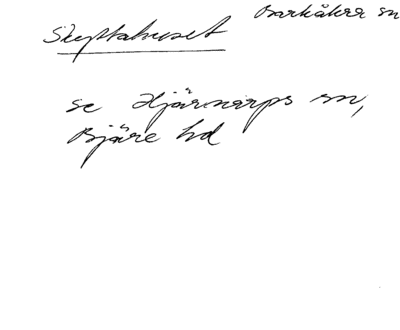 Skyttahuset Barkåkra sn
se Hjärnarps sn,
Bjäre hd